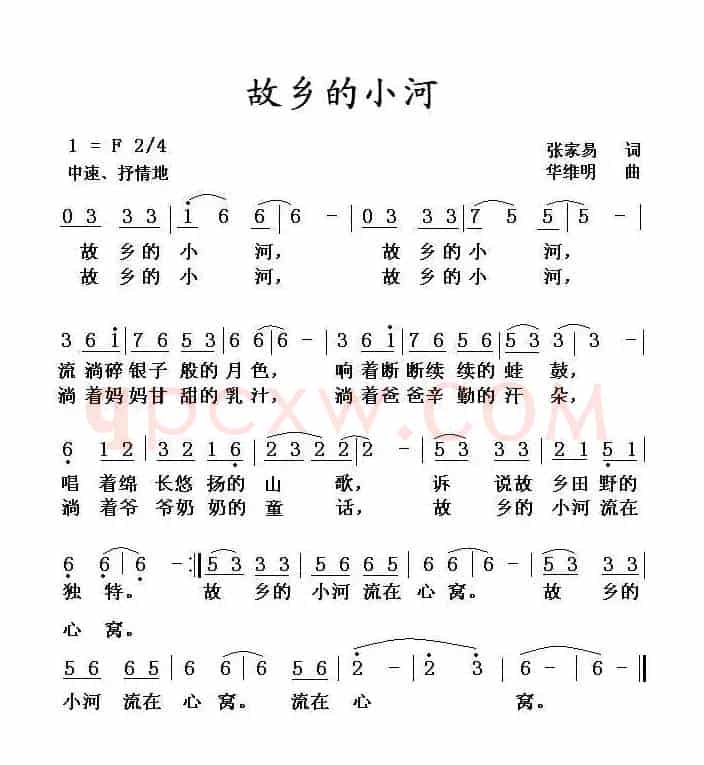 故乡的小河
1 = F 2/4 张家易 词
中速、抒情地 华维明 曲
0 3 3 3 | i 6 6 | 6 - | 0 3 3 3 | 7 5 5 | 5 - |
故 乡 的 小 河， 故 乡 的 小 河，
故 乡 的 小 河， 故 乡 的 小 河，
3 6 i | 7 6 5 3 | 6 6 | 6 - | 3 6 i | 7 6 5 6 | 5 3 | 3 - |
流 淌碎 银子 般的 月 色， 响 着断 断续 续的 蛙 鼓，
淌 着妈 妈甘 甜的 乳 汁， 淌 着爸 爸辛 勤的 汗 朵，
qpcxw.COM
6 1 2 | 3 2 1 6 | 2 3 2 2 | 2 - | 5 3 3 3 | 2 1 5 1 |
唱 着绵 长悠 扬的 山 歌， 诉 说故 乡田 野的
淌 着爷 爷奶 奶的 童 话， 故 乡的 小河 流在
6 6 | 6 - :| 5 3 3 3 | 5 6 6 5 | 6 6 | 6 - | 5 3 3 3 |
独 特。 故 乡的 小河 流在 心 窝。 故 乡的
心 窝。
5 6 6 5 | 6 6 | 5 6 6 5 | 6 6 | 2 - | 2 3 | 6 - | 6 - ‖
小河 流在 心 窝。 流在 心 窝。